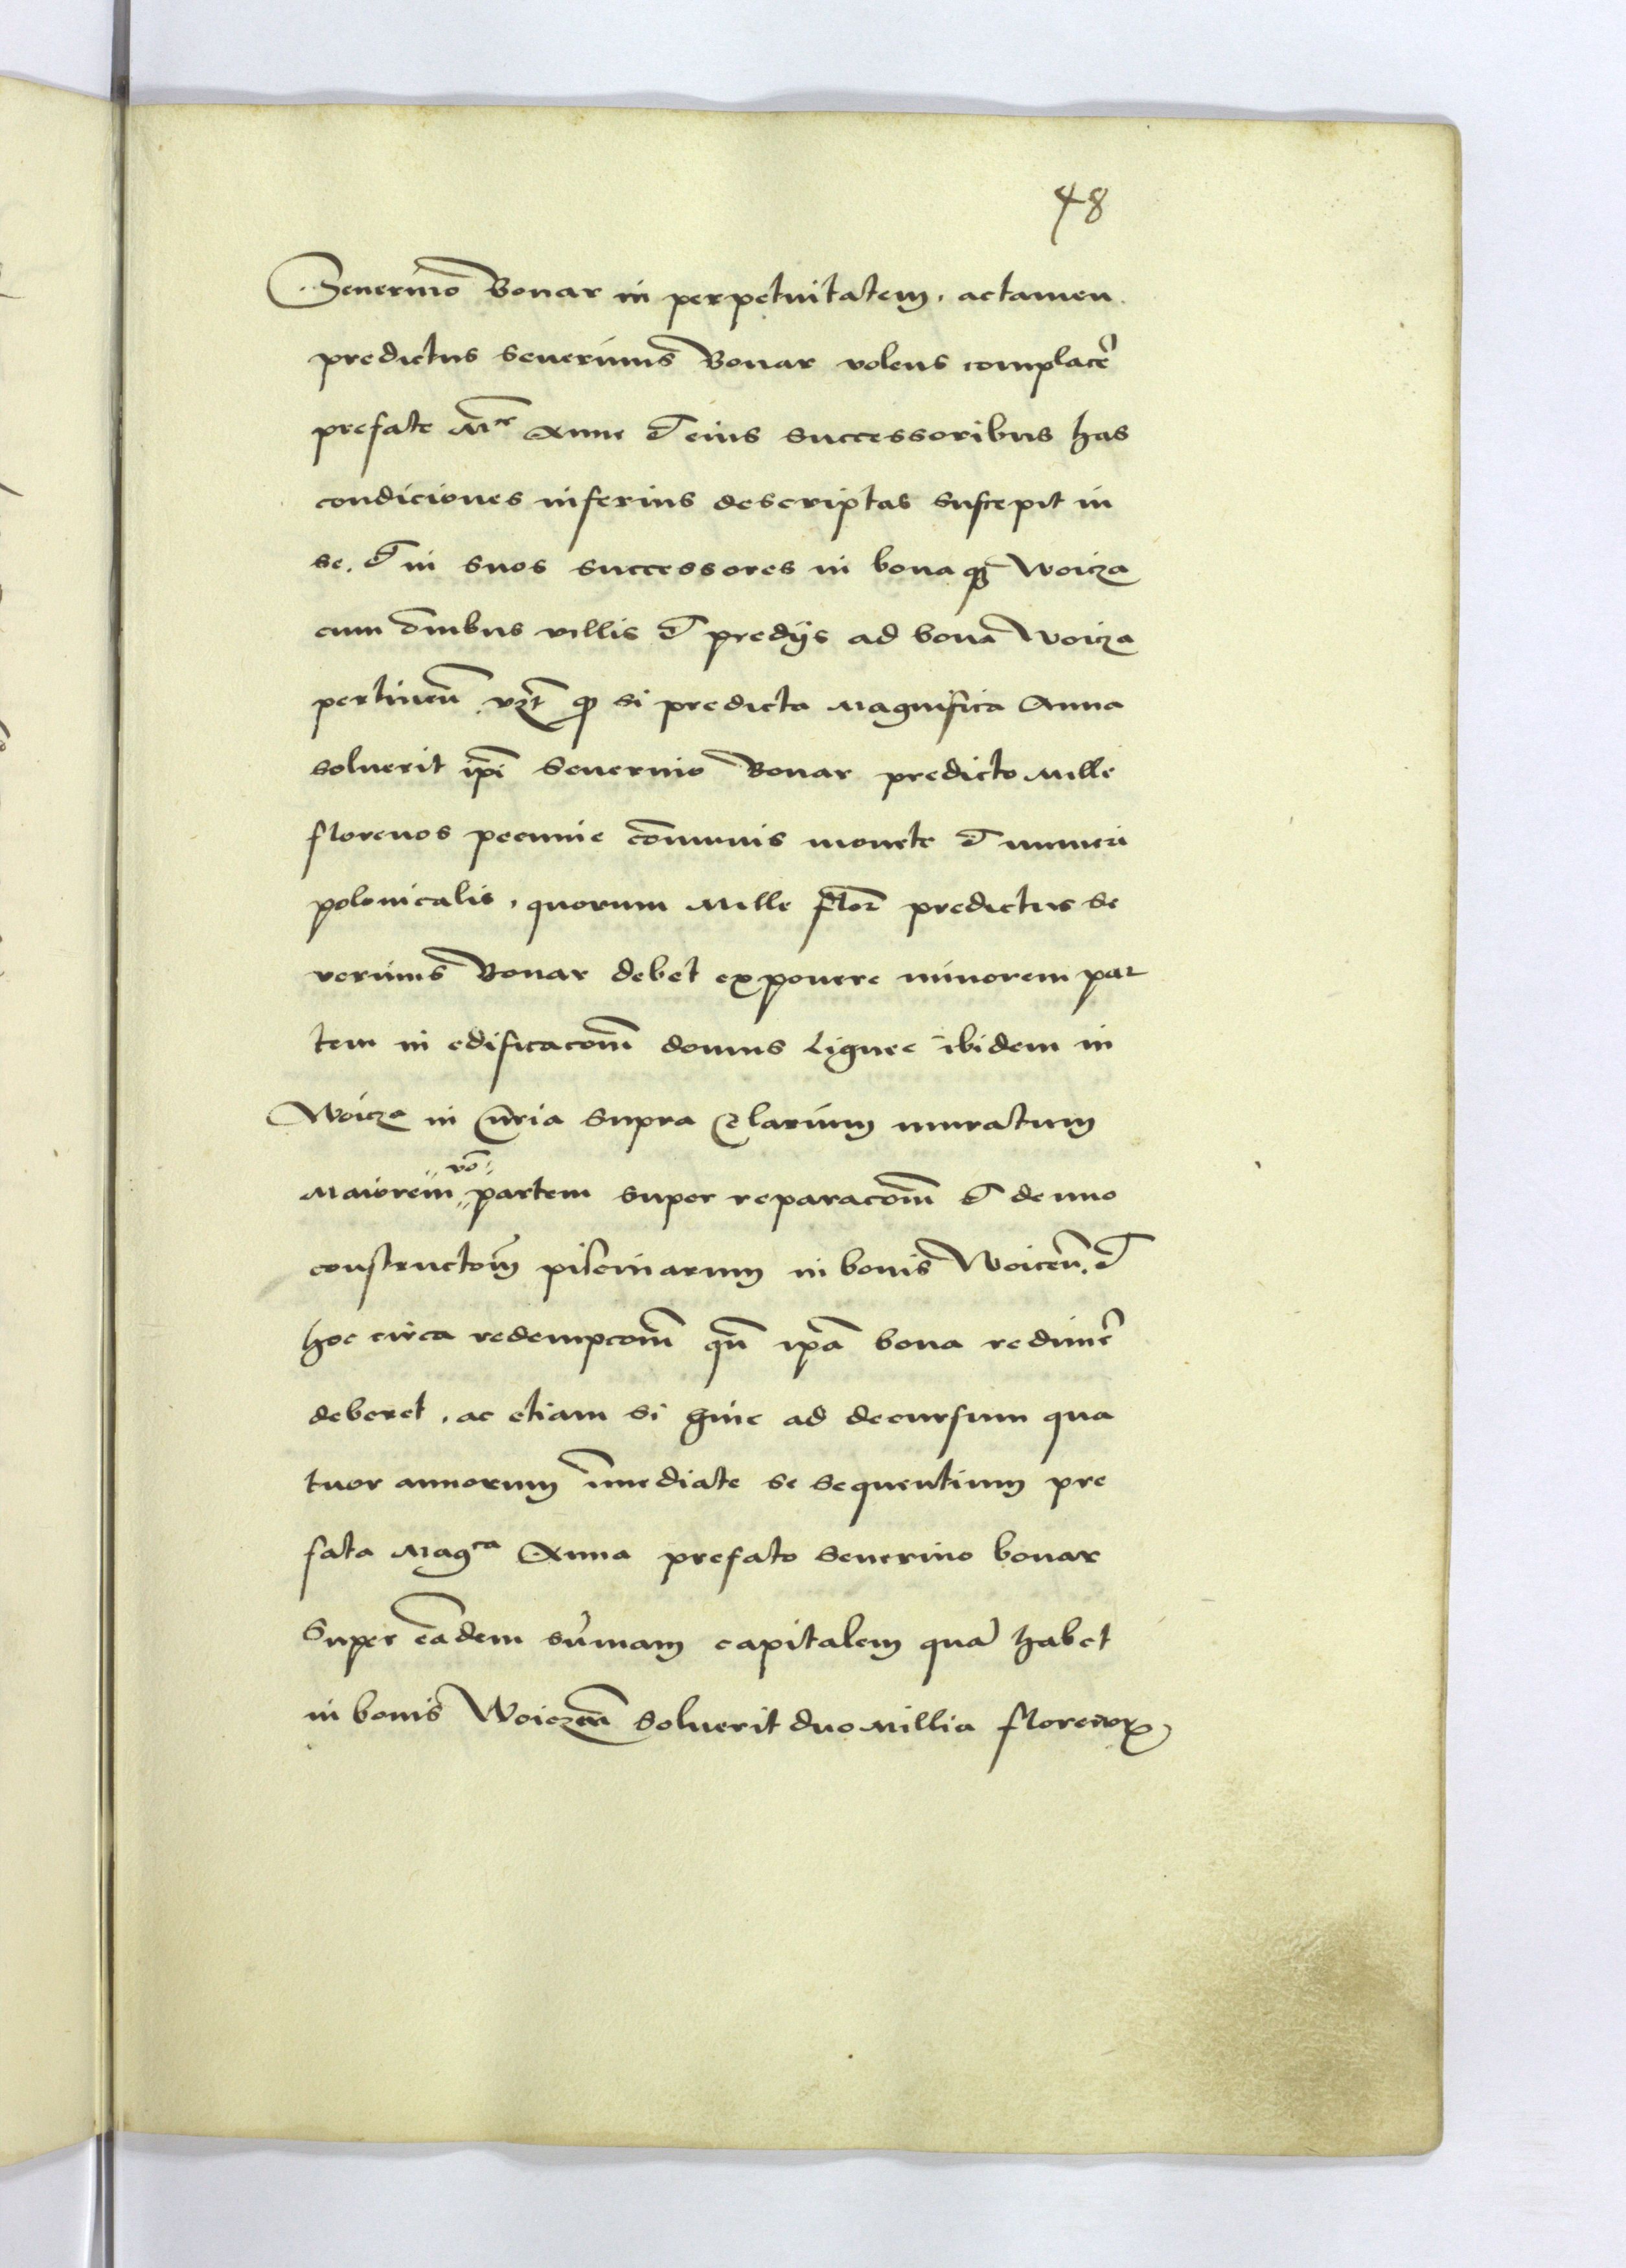 48
Seuerino Bonar in perpetuitatem, actamen
predictus Seuerinus Bonar volens complacer̄
prefate M̄ce Anne et eius successoribus has
condiciones inferius descriptas suscepit in
se, et in suos successores in bona q̄ Woicza
cum om̄ibus villis et predijs ad bona Woicza
pertinen̄ vz̄t q̄ si predicta Magnifica Anna
soluerit ip̄i Seuerino Bonar predicto Mille
florenos pecunie com̄unis monete et numeri
polonicalis, quorum Mille flor̄ predictus Se
verinus Bonar debet exponere minorem par
tem in edificacōm̄ domus Lignee ibidem in
Woicza in Curia supra Celarium muratum
Maiorem vō partem super reparacōm̄ et de nuo
constructōm̄ piscinarum in bonis Woicen̄, et
hoc circa redempcōm̄ qn̄ ip̄a bona redimer̄
deberet, ac etiam si hinc ad decursum qua
tuor annorum im̄ediate se sequentium pre
fata Magca Anna prefato Seuerino bonar
Super eādem sum̄am capitalem quā habet
in bonis Woiczen̄ soluerit duo Millia florenorꝝ